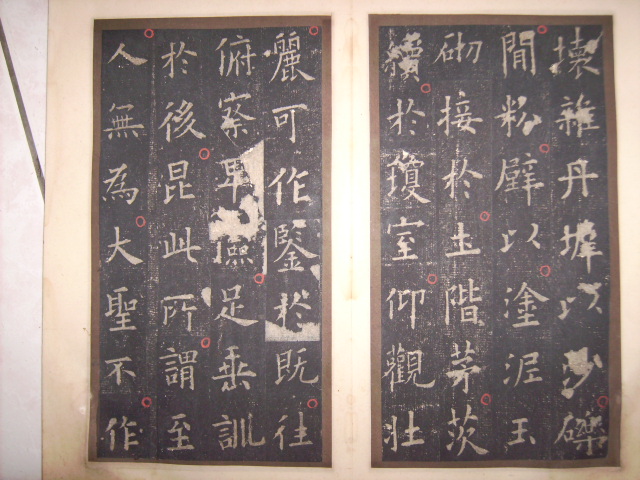 壞雜丹墀以沙礫
間粉壁以塗泥玉
砌接於土階茅茨
續於瓊室仰觀壯
麗可作鑒於既往
俯察卑儉足垂訓
於後昆此所謂至
人無為大聖不作